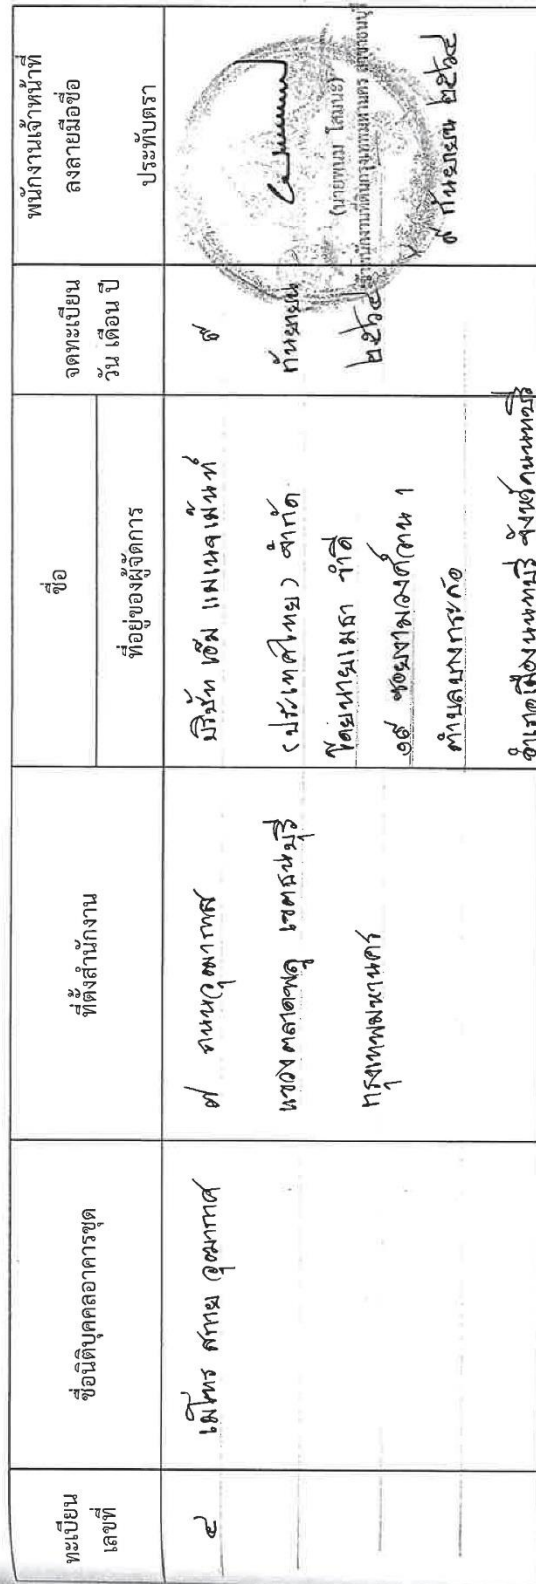 ทะเบียน
เลขที่
ชื่อนิติบุคคลอาคารชุด
ที่ตั้งสำนักงาน
ชื่อ
ที่อยู่ของผู้จัดการ
จดทะเบียน
วัน เดือน ปี
พนักงานเจ้าหน้าที่
ลงลายมือชื่อ
ประทับตรา
๔
เมโทร สกาย วุฒากาศ
๗ ถนนวุฒากาศ
แขวงตลาดพลู เขตธนบุรี
กรุงเทพมหานคร
บริษัท เอ็ม แมเนจเม้นท์
(ประเทศไทย) จำกัด
โดยนายเมธา
๑๙ ซอยงามวงศ์วาน 1
ตำบลบางกระสอ
อำเภอเมืองนนทบุรี จังหวัดนนทบุรี
๙
กันยายน
๒๕๖๔
(นายพนม โสมนะ)
เจ้าพนักงานที่ดินกรุงเทพมหานคร สาขาธนบุรี
๙ กันยายน ๒๕๖๔